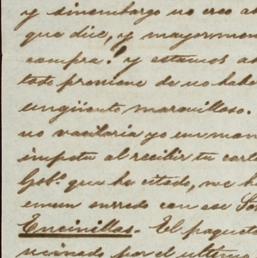 y sinembargo no creo
que dice, y mayormen
compra? y estamos
todo proviene de no habe
ungüento maravilloso.
no vacilaria yo en man
impota al recibir tu cart
Gob.º que ha citado, we he
en un enredo con ese
Encinillas. El paquete
por el ultimo